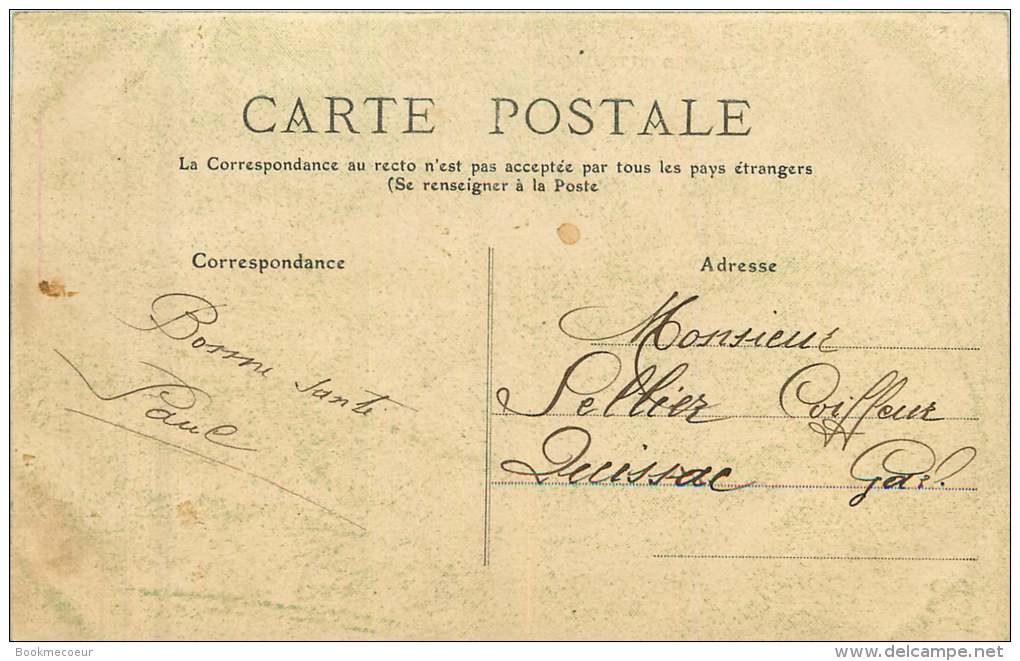 CARTE POSTALE
La Correspondance au recto n'est pas acceptée par tous les pays étrangers
(Se renseigner à la Poste
Correspondance
Bonne santé
Paul
Adresse
Monsieur
Sellier Coiffeur
Quissac Gard.
Bookmecoeur
delcampe.net